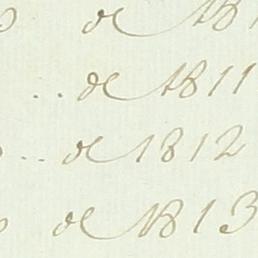 de 181
.. de 1811
.. de 1812
de 1813